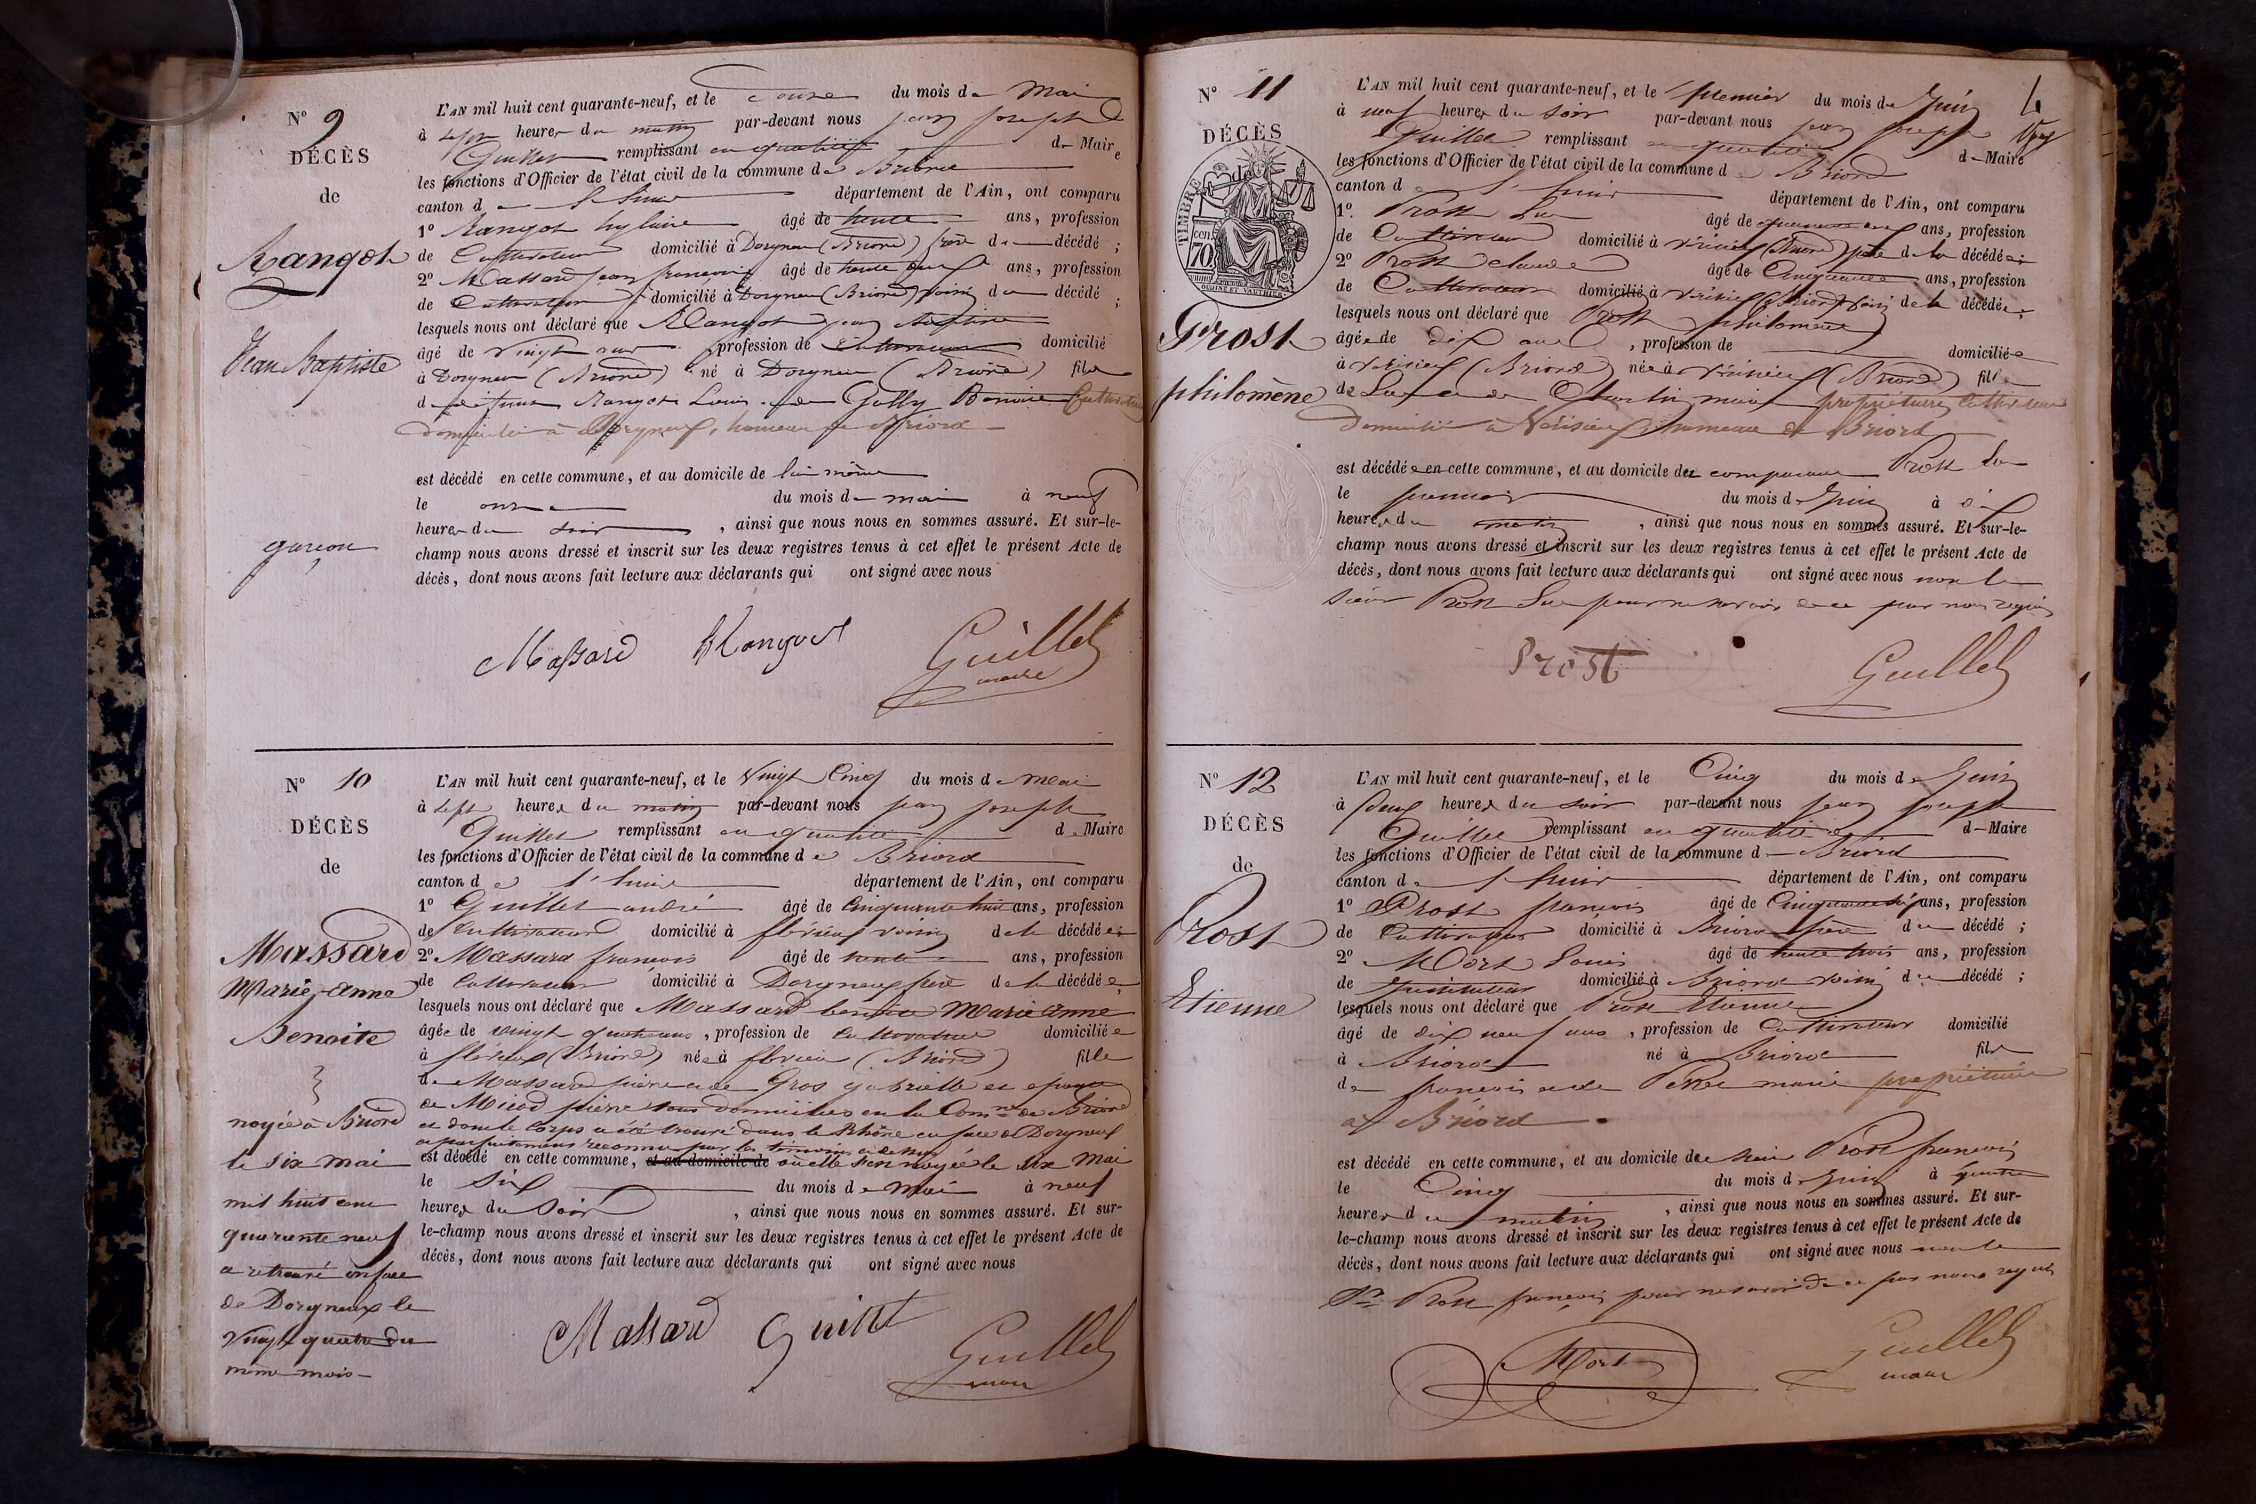 N° 9
DÉCÈS
de
Rangot
Jean Baptiste
garçon
L'AN mil huit cent quarante-neuf, et le douze du mois de Mai
à sept heures du matin par-devant nous jean joseph
Guillet remplissant en qualité de Maire
les fonctions d'Officier de l'état civil de la commune de Briord
canton de département de l'Ain, ont comparu
1° Rangot hylaire âgé de trente ans, profession
de Cultivateur domicilié à Dorgneux (Briord) frère du décédé ;
2° Massard jean françois âgé de trente ans, profession
de Cultivateur domicilié à Dorgneux (Briord) voisin du décédé ;
lesquels nous ont déclaré que Rangot jean
âgé de vingt profession de Cultivateur domicilié
à Dorgneux (Briord) né à Dorgneux (Briord) fils
de défunt Rangot Louis et de Gully Benoite
domicilié à Dorgneux, hameau de Briord
est décédé en cette commune, et au domicile de lui même
le onze du mois de mai à neuf
heures du soir, ainsi que nous nous en sommes assuré. Et sur-le-
champ nous avons dressé et inscrit sur les deux registres tenus à cet effet le présent Acte de
décès, dont nous avons fait lecture aux déclarants qui ont signé avec nous
Massard Rangot Guillet
maire
N° 10
DÉCÈS
de
Massard
Marie-anne
Benoite
noyée à Briord
le six mai
mil huit cent
quarante neuf
a retrouvé en face
de Dorgneux le
vingt quatre du
même mois
L'AN mil huit cent quarante-neuf, et le Vingt Cinq du mois de mai
à sept heures du matin par-devant nous jean joseph
Guillet remplissant en qualité de Maire
les fonctions d'Officier de l'état civil de la commune de Briord
canton de département de l'Ain, ont comparu
1° Guillet andré âgé de cinquante huit ans, profession
de Cultivateur domicilié à flérieux voisin de la décédée
2° Massard françois âgé de trente ans, profession
de Cultivateur domicilié à Dorgneux frère de la décédée
lesquels nous ont déclaré que Massard benoite Marie anne
âgée de vingt quatre ans, profession de cultivateur domiciliée
à flérieux (Briord) née à flérieux (Briord) fille
de Massard pierre et de Gros gabrielle et epouse
de Micod pierre tous domiciliés en la Comne de Briord
et dont le corps a été trouvé dans le Rhône en face de Dorgneux
et parfaitement reconnu par les témoins ci dessus
est décédé en cette commune, et au domicile de où elle s'est noyée le six Mai
le Six du mois de Mai à neuf
heures du Soir, ainsi que nous nous en sommes assuré. Et sur-
le-champ nous avons dressé et inscrit sur les deux registres tenus à cet effet le présent Acte de
décès, dont nous avons fait lecture aux déclarants qui ont signé avec nous
Massard Guillet Guillet
maire
4
N° 11
DÉCÈS
de
TIMBRE
70 cen.
Prost
philomène
L'AN mil huit cent quarante-neuf, et le premier du mois de Juin
à neuf heures du soir par-devant nous jean joseph
Guillet remplissant en qualité de Maire
les fonctions d'Officier de l'état civil de la commune de Briord
canton de département de l'Ain, ont comparu
1° Prost âgé de quarante ans, profession
de Cultivateur domicilié à Vérisieu (Briord) père de la décédée
2° Prost claude âgé de Cinquante ans, profession
de Cultivateur domicilié à Vérisieu (Briord) voisin de la décédée ;
lesquels nous ont déclaré que Prost philomène
âgée de dix ans, profession de domiciliée
à Vérisieu (Briord) née à Vérisieu (Briord) fille
de et de marie propriétaire Cultivateur
Domicilié à Vérisieu hameau de Briord
est décédée en cette commune, et au domicile du comparant Prost
le premier du mois de Juin à dix
heures du matin, ainsi que nous nous en sommes assuré. Et sur-le-
champ nous avons dressé et inscrit sur les deux registres tenus à cet effet le présent Acte de
décès, dont nous avons fait lecture aux déclarants qui ont signé avec nous non le
Sieur Prost pour ne savoir de ce par nous requis
Prost Guillet
N° 12
DÉCÈS
de
Prost
Etienne
L'AN mil huit cent quarante-neuf, et le Cinq du mois de Juin
à heures du soir par-devant nous jean joseph
Guillet remplissant en qualité de Maire
les fonctions d'Officier de l'état civil de la commune de Briord
canton de département de l'Ain, ont comparu
1° Prost françois âgé de ans, profession
de Cultivateur domicilié à Briord père du décédé ;
2° Mort Louis âgé de trente trois ans, profession
de Instituteur domicilié à Briord voisin du décédé ;
lesquels nous ont déclaré que Prost Etienne
âgé de dix neuf ans, profession de Cultivateur domicilié
à Briord né à Briord fils
de françois et de marie propriétaire
à Briord
est décédé en cette commune, et au domicile de Prost françois
le Cinq du mois de Juin à quatre
heures du matin, ainsi que nous nous en sommes assuré. Et sur-
le-champ nous avons dressé et inscrit sur les deux registres tenus à cet effet le présent Acte de
décès, dont nous avons fait lecture aux déclarants qui ont signé avec nous non le
Sr Prost françois pour ne savoir de ce par nous requis
Mort Guillet
maire